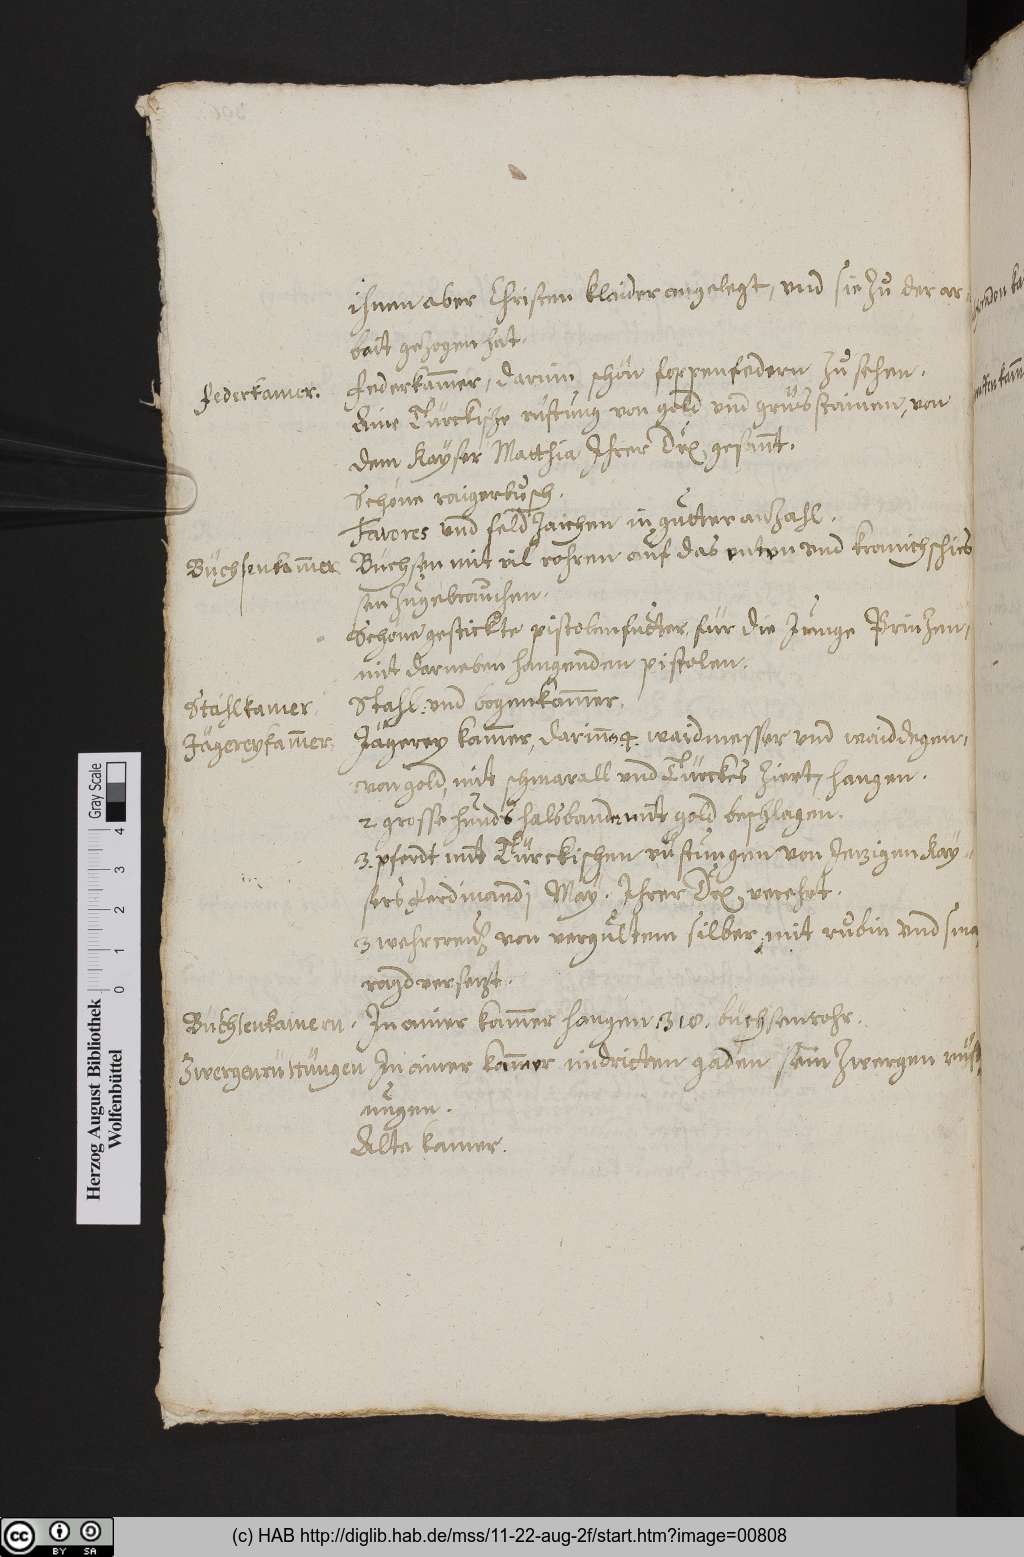 ihnen aber Christen klaider angelegt, vnd sie Zu der ar-
bait gezogen hat.
Federkamer.
Federkam̄er, darinn schön federn Zu sehen.
Aine Türckische rüstung von gold vnd stainen, von
dem Kayser Matthia Ihrer Dr. gesan̄t.
Schöne raigerbüsch.
Favores vnd feldZaichen in gutter anZahl.
Büchsenkam̄er
Büchsen mit vil rohren auf das enten vnd kranichschies
sen Zugebrauchen.
Schöne gestickte pistolenfutter für die Junge PrinZen,
mit darneben hangenden pistolen.
Stahlkamer.
Stahl: vnd bogenkam̄er.
Jägereykam̄er.
Jägerey kam̄er, darinn 4. waidmesser vnd waiddegen,
von gold, mit schmarall vnd Türckes Ziert, hangen.
2 grosse hunds halsbande mit gold beschlagen.
3. pferdt mit Türckischen rüstungen von JetZigen Kay-
sers Ferdinandj May. Ihrer Dr. verehrt.
3 von vergültem silber mit rubin vnd sma
ragd versetzt.
Büchsenkamern.
In ainer kam̄er hangen 310. büchsenrohr.
Zwergenrüstungen
In ainer kam̄er im dritten gaden sein Zwergen rüst
ungen.
Alte kamer.
Herzog August Bibliothek
Wolfenbüttel
0 1 2 3 4
Gray Scale
cc BY SA
(c) HAB http://diglib.hab.de/mss/11-22-aug-2f/start.htm?image=00808